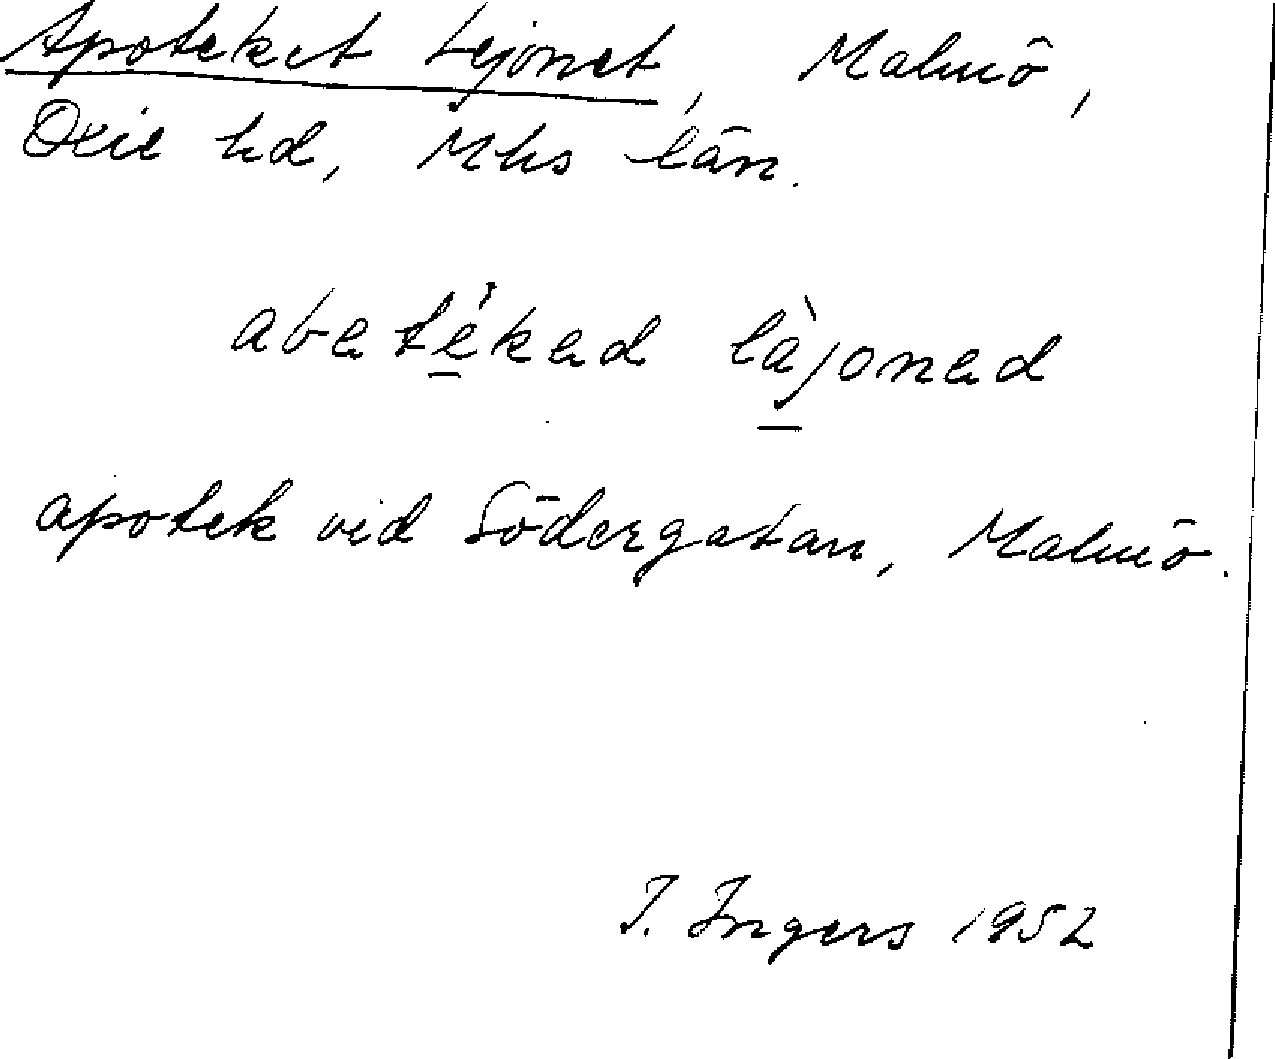 Apoteket Lejonet, Malmö,
Oxie hd, Mhs län.
abatékad làjonad
apotek vid Södergatan, Malmö.
I. Ingers 1952